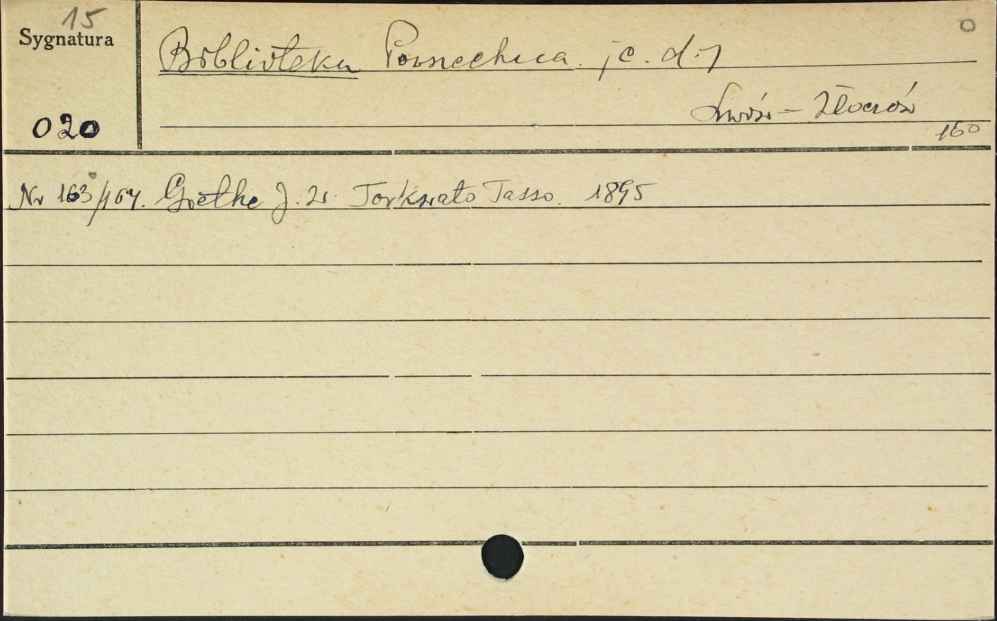 15
Sygnatura
020
Biblioteka Powszechna. [c. d.]
Lwów - Złoczów
160
Nr 163/164. Goethe J. W. Torkwato Tasso. 1895